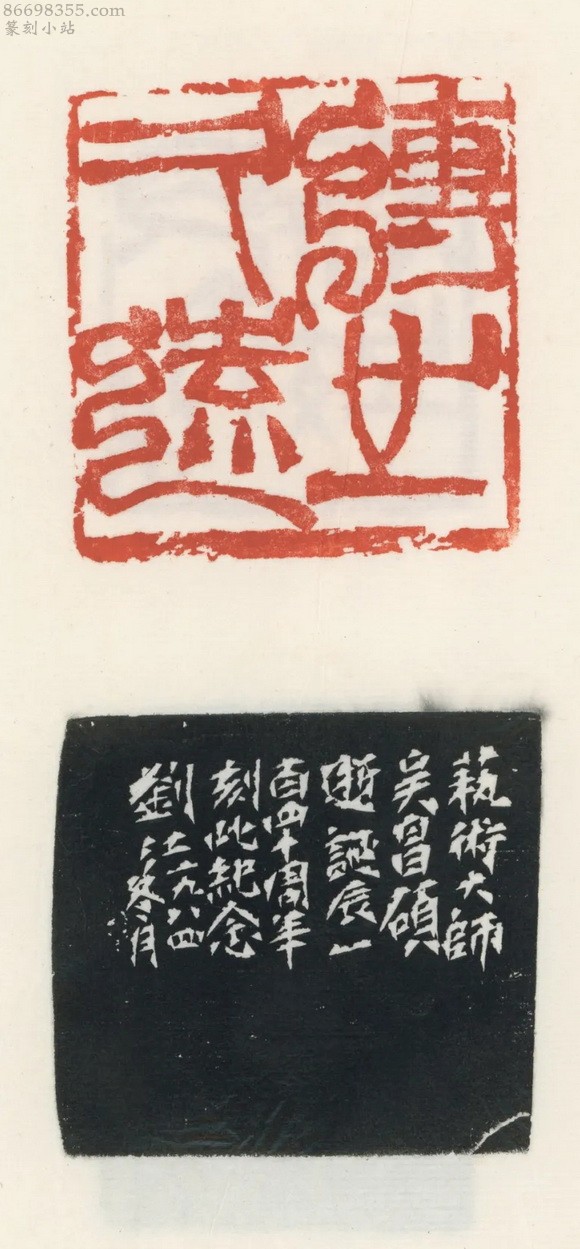 86698355.com
篆刻小站
傳之
久遠
藝術大師
吳昌碩
誕辰一
百四十周年
刻此紀念
劉江一九八四
冬月